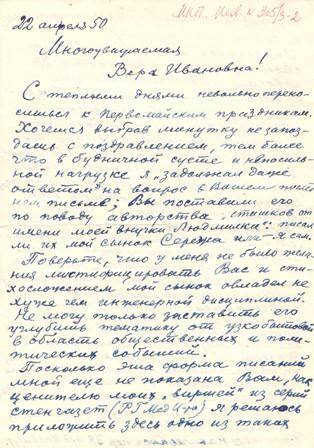 МКП. Инв. N 305/3-2
22 апреля 50
Многоуважаемая
Вера Ивановна!
С теплыми днями невольно перено-
сишься к Первомайским праздникам.
Хочется выбрав минутку не запоз-
дать с поздравлением, тем более
что в будничной суете и непосиль-
ной нагрузке я "задолжал даже
ответом" на вопрос в Вашем
нем письме; Вы поставили его
по поводу авторства "стишков от
имени моей внучки Людмилки": писал
ли их мой сынок Сережа или - я сам.
Поверьте, что у меня не было жела-
ния мистифицировать Вас и сти-
хосложением мой сынок овладел не
хуже чем инженерной дисциплиной.
Не могу только заставить его
углубить тематику от узкобытовой
в область общественных и поли-
тических событий.
Поскольку эта форма писаний
мной еще не показана Вам, как
ценителю моих "виршей" из серий
стенгазет (РГМедИ-та) я решаюсь
приложить здесь одно из таких